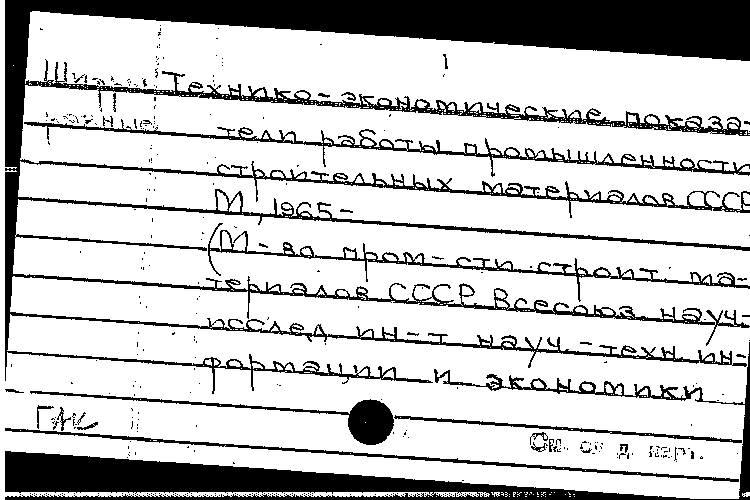 1
Шифры Технико-экономические показа-
разные тели работы промышленности
строительных материалов СССР
М., 1965-
(М-во пром-сти строит. ма-
териалов СССР. Всесоюз. науч.-
исслед. ин-т науч.-техн. ин-
формации и экономики
ГАК
См. сл. д. карт.